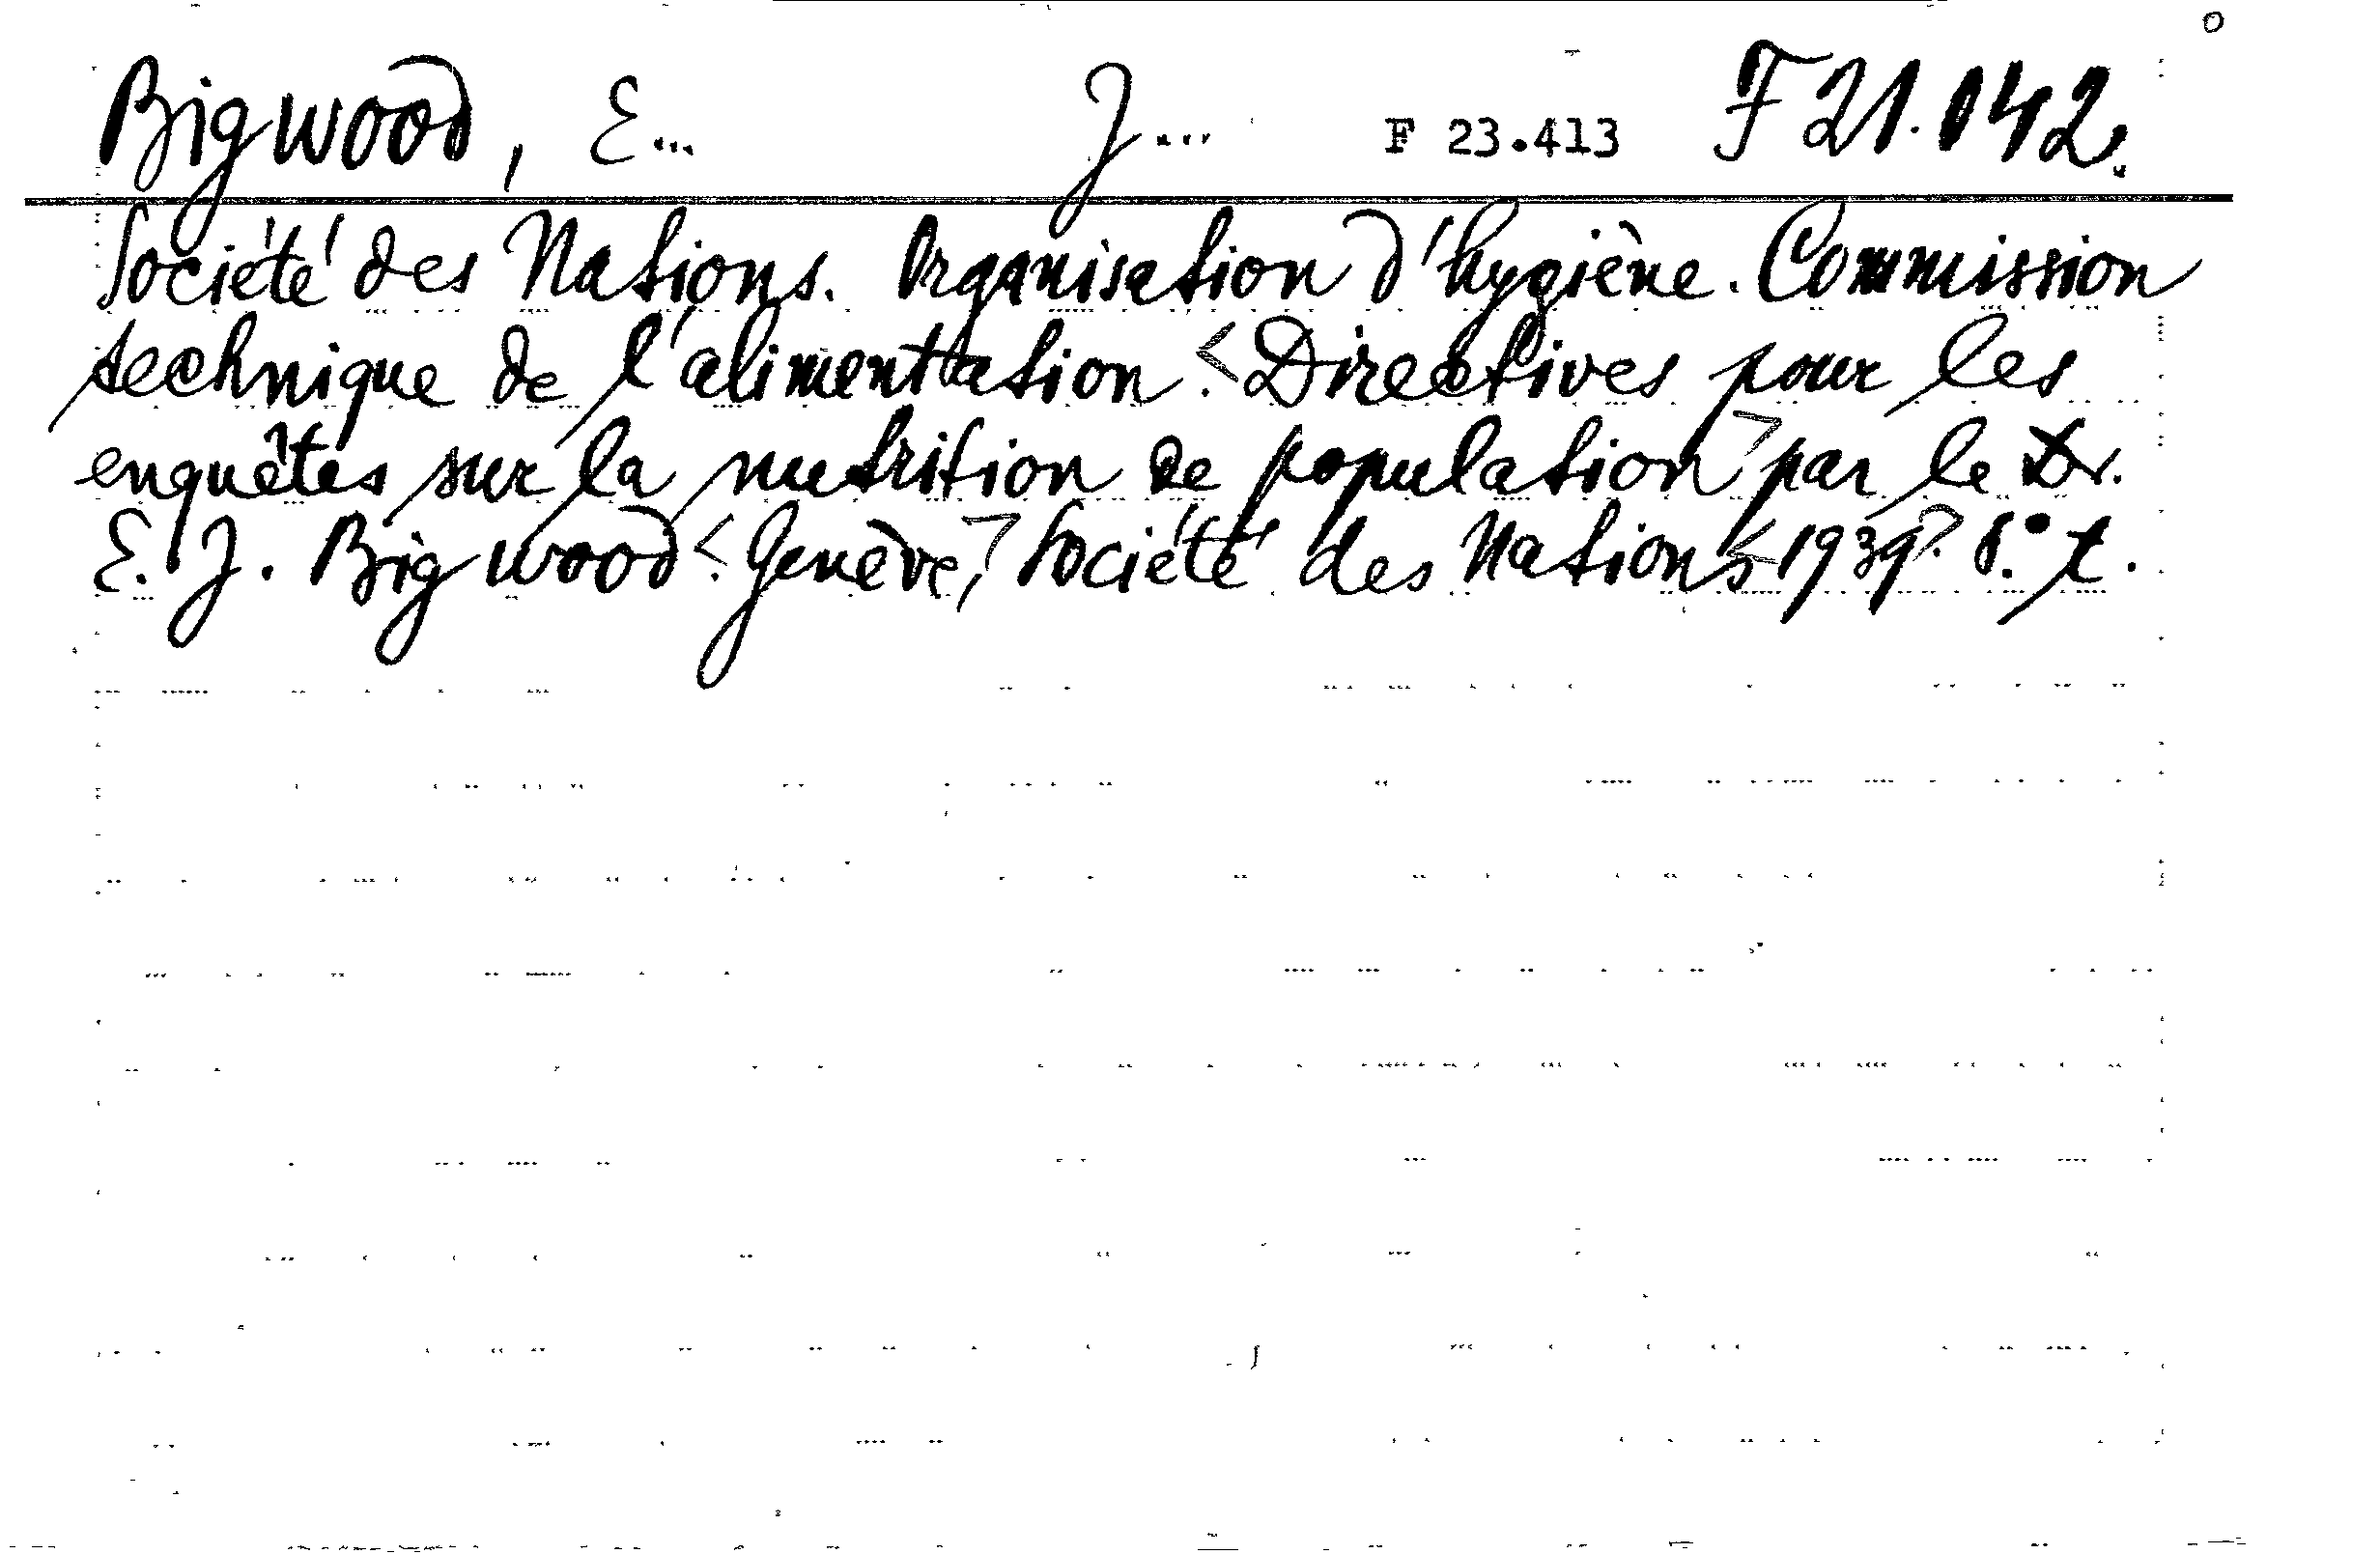 Bigwood, E... J... F 23.413 F 21.042.
Société des Nations. Organisation d'hygiène. Commission
technique de l'alimentation. <Directives pour les
enquêtes sur la nutrition de population> par le Dr.
E. J. Bigwood. <Genève,> Société des Nations <1939>. 8.° t.